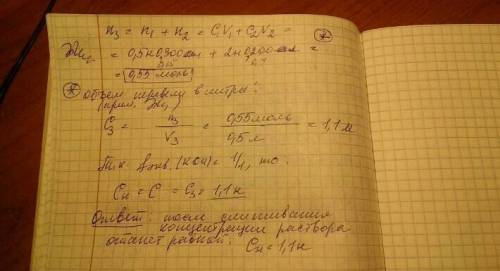 n₃ = n₁ + n₂ = C₁V₁ + C₂V₂ =
= 0,5н·0,300 + 2н·0,200 =
= 0,55 моль
* объем перевели в литры
C₃ = n₃/V₃ = 0,55 моль/0,5 л = 1,1 М
Т.к. fэкв. (KOH) = 1/1, то
Cн = C = C₃ = 1,1 н
Ответ: после смешивания
концентрация раствора
станет равной: Cн = 1,1 н